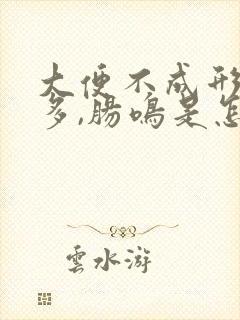 大便不成形
多,腸鳴是怎
雲水游